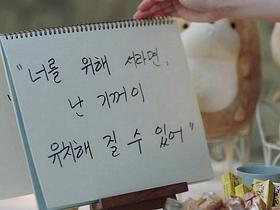 "너를 위해 서라면,
난 기꺼이
유치해 질 수 있어"